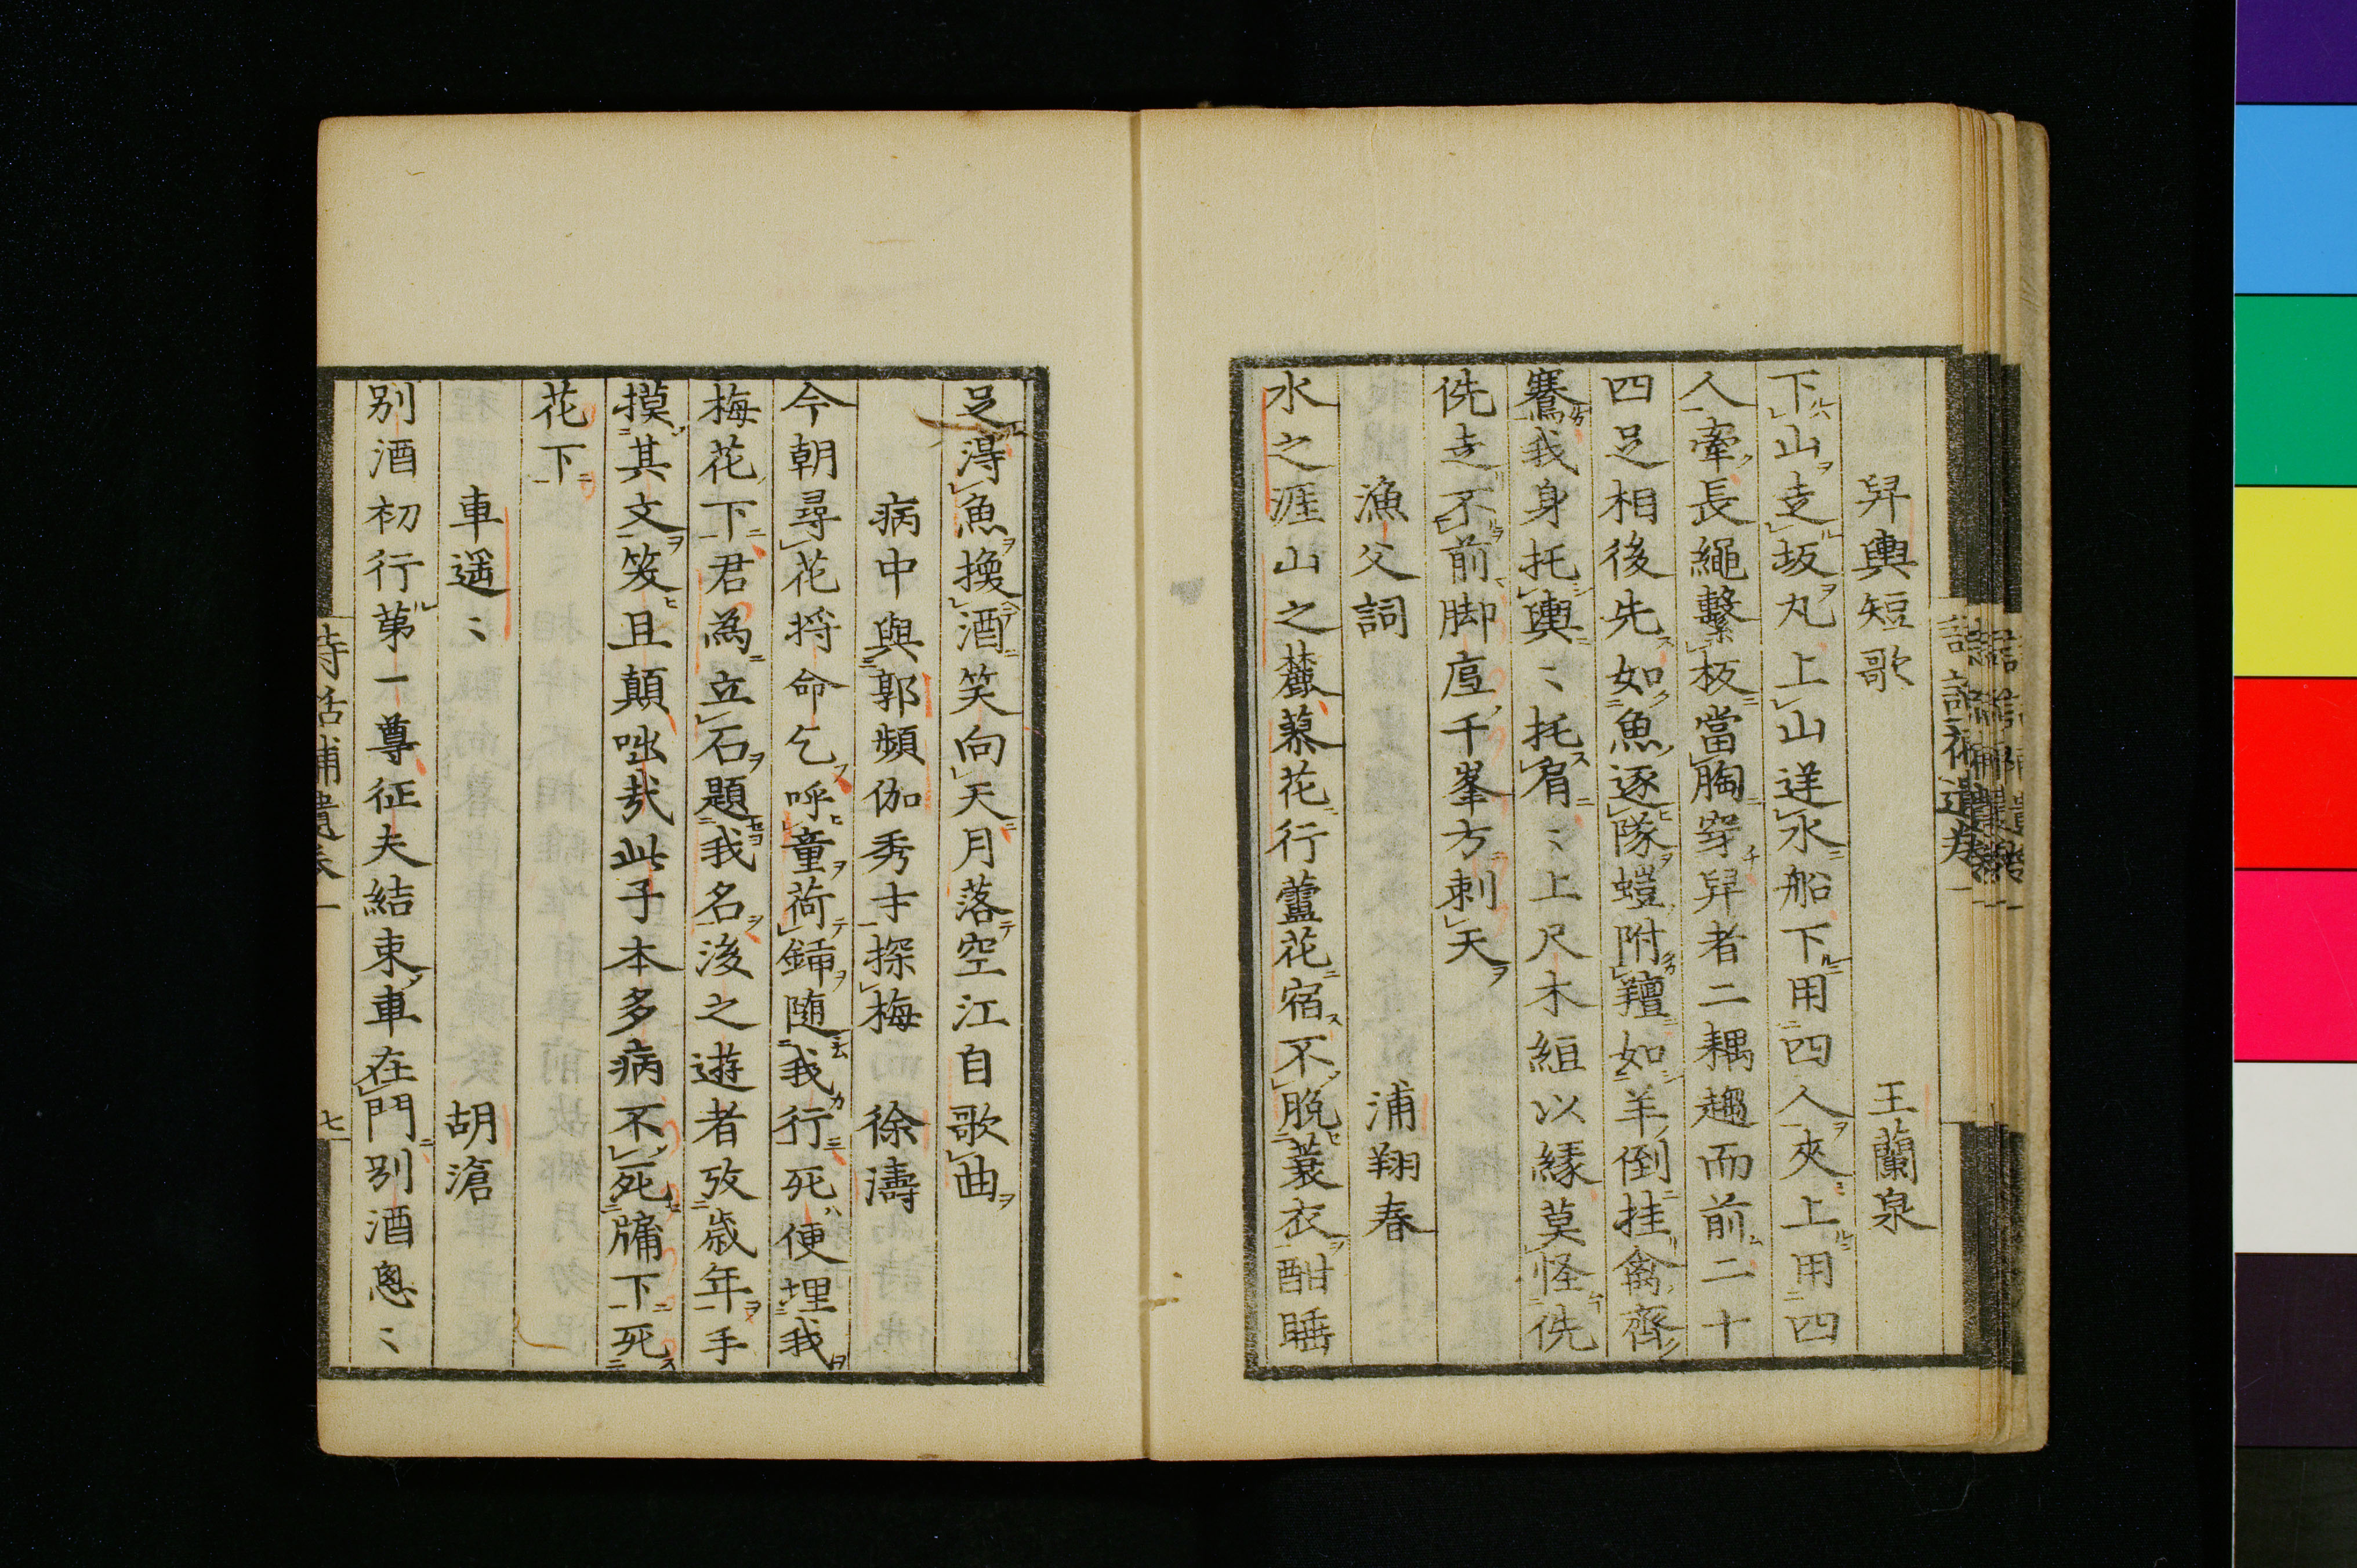 舁輿短歌　王蘭泉
下山走坂丸上山逆水船下用四人夾上用四
人牽長繩繫板當胸穿舁者二耦趨而前二十
四足相後先如魚逐隊螘附羶如羊倒挂禽齊
騫我身托輿〻托肩〻上尺木組以緣莫怪侁
侁走不前脚底千峯方刺天
漁父詞　浦翔春
水之涯山之麓慕花行蘆花宿不脫蓑衣酣睡
足得魚換酒笑向天月落空江自歌曲
病中與郭頻伽秀才探梅　徐濤
今朝尋花將命乞呼童荷鍤隨我行死便埋我
梅花下君為立石題我名後之遊者攷歲年手
摸其文笑且顛咄哉此手本多病不死牖下死
花下
車遥〻　胡滄
別酒初行第一尊征夫結束車在門別酒悤〻
詩話補遺卷一
七